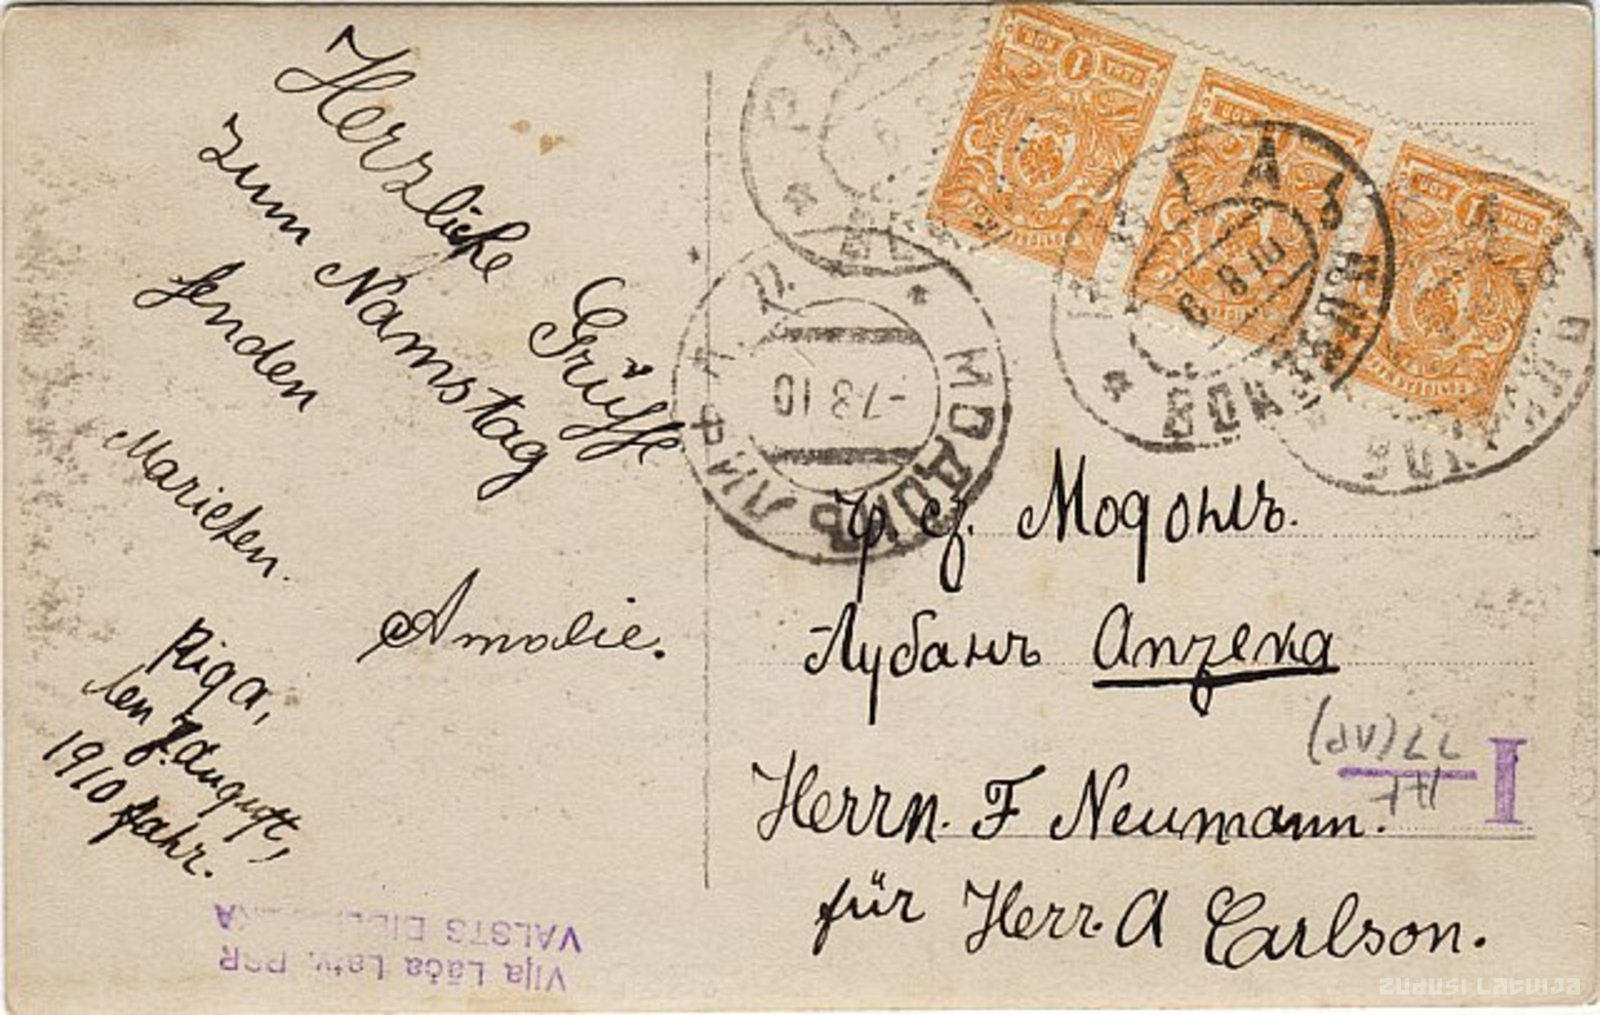 Herzliche Grüsse
zum Namstag
senden
Mariechen.
Amalie.
Riga,
den 7. August,
1910 Jahr.
ст. Модонъ.
Лубанъ Аптека
Herrn. F Neumann.
für Herr. A Carlson.
МОДОНЪ ЛИФЛ.
-7 8 10
РИГА
6 8 10
ВОКЗАЛЪ
1
1
I
77 (AP)
Viļa Lāča Latv. PSR
VALSTS
zudusi Latvija